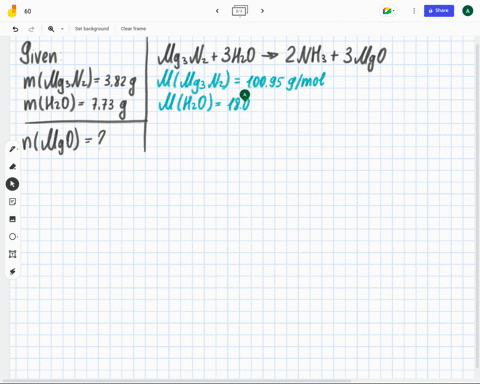 60
1/1
Share
A
Set background
Clear frame
Given
m(Mg₃N₂) = 3.82 g
m(H₂O) = 7.73 g
n(MgO) = ?
Mg₃N₂ + 3H₂O → 2NH₃ + 3MgO
M(Mg₃N₂) = 100.95 g/mol
M(H₂O) = 18.0
A